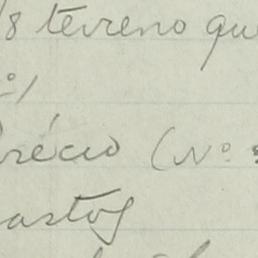 /8 terreno que
º,
récio (Nº
astos